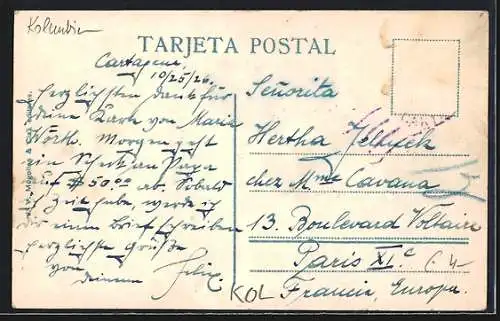 Kolumbien
TARJETA POSTAL
Cartagena,
10/25/26.
Herzlichsten Dank für
deine Karte von Maria
Wörth. Morgen geht
ein Scheck an Papa
auf $50.00 ab. Sobald
ich Zeit habe, werde ich
dir einen Brief schreiben
herzlichste Grüße
von
deinem Felix.
Señorita
Hertha Jellinek
chez Mme Cavana
13. Boulevard Voltaire
Paris XIe
Francia, Europa.
KOL